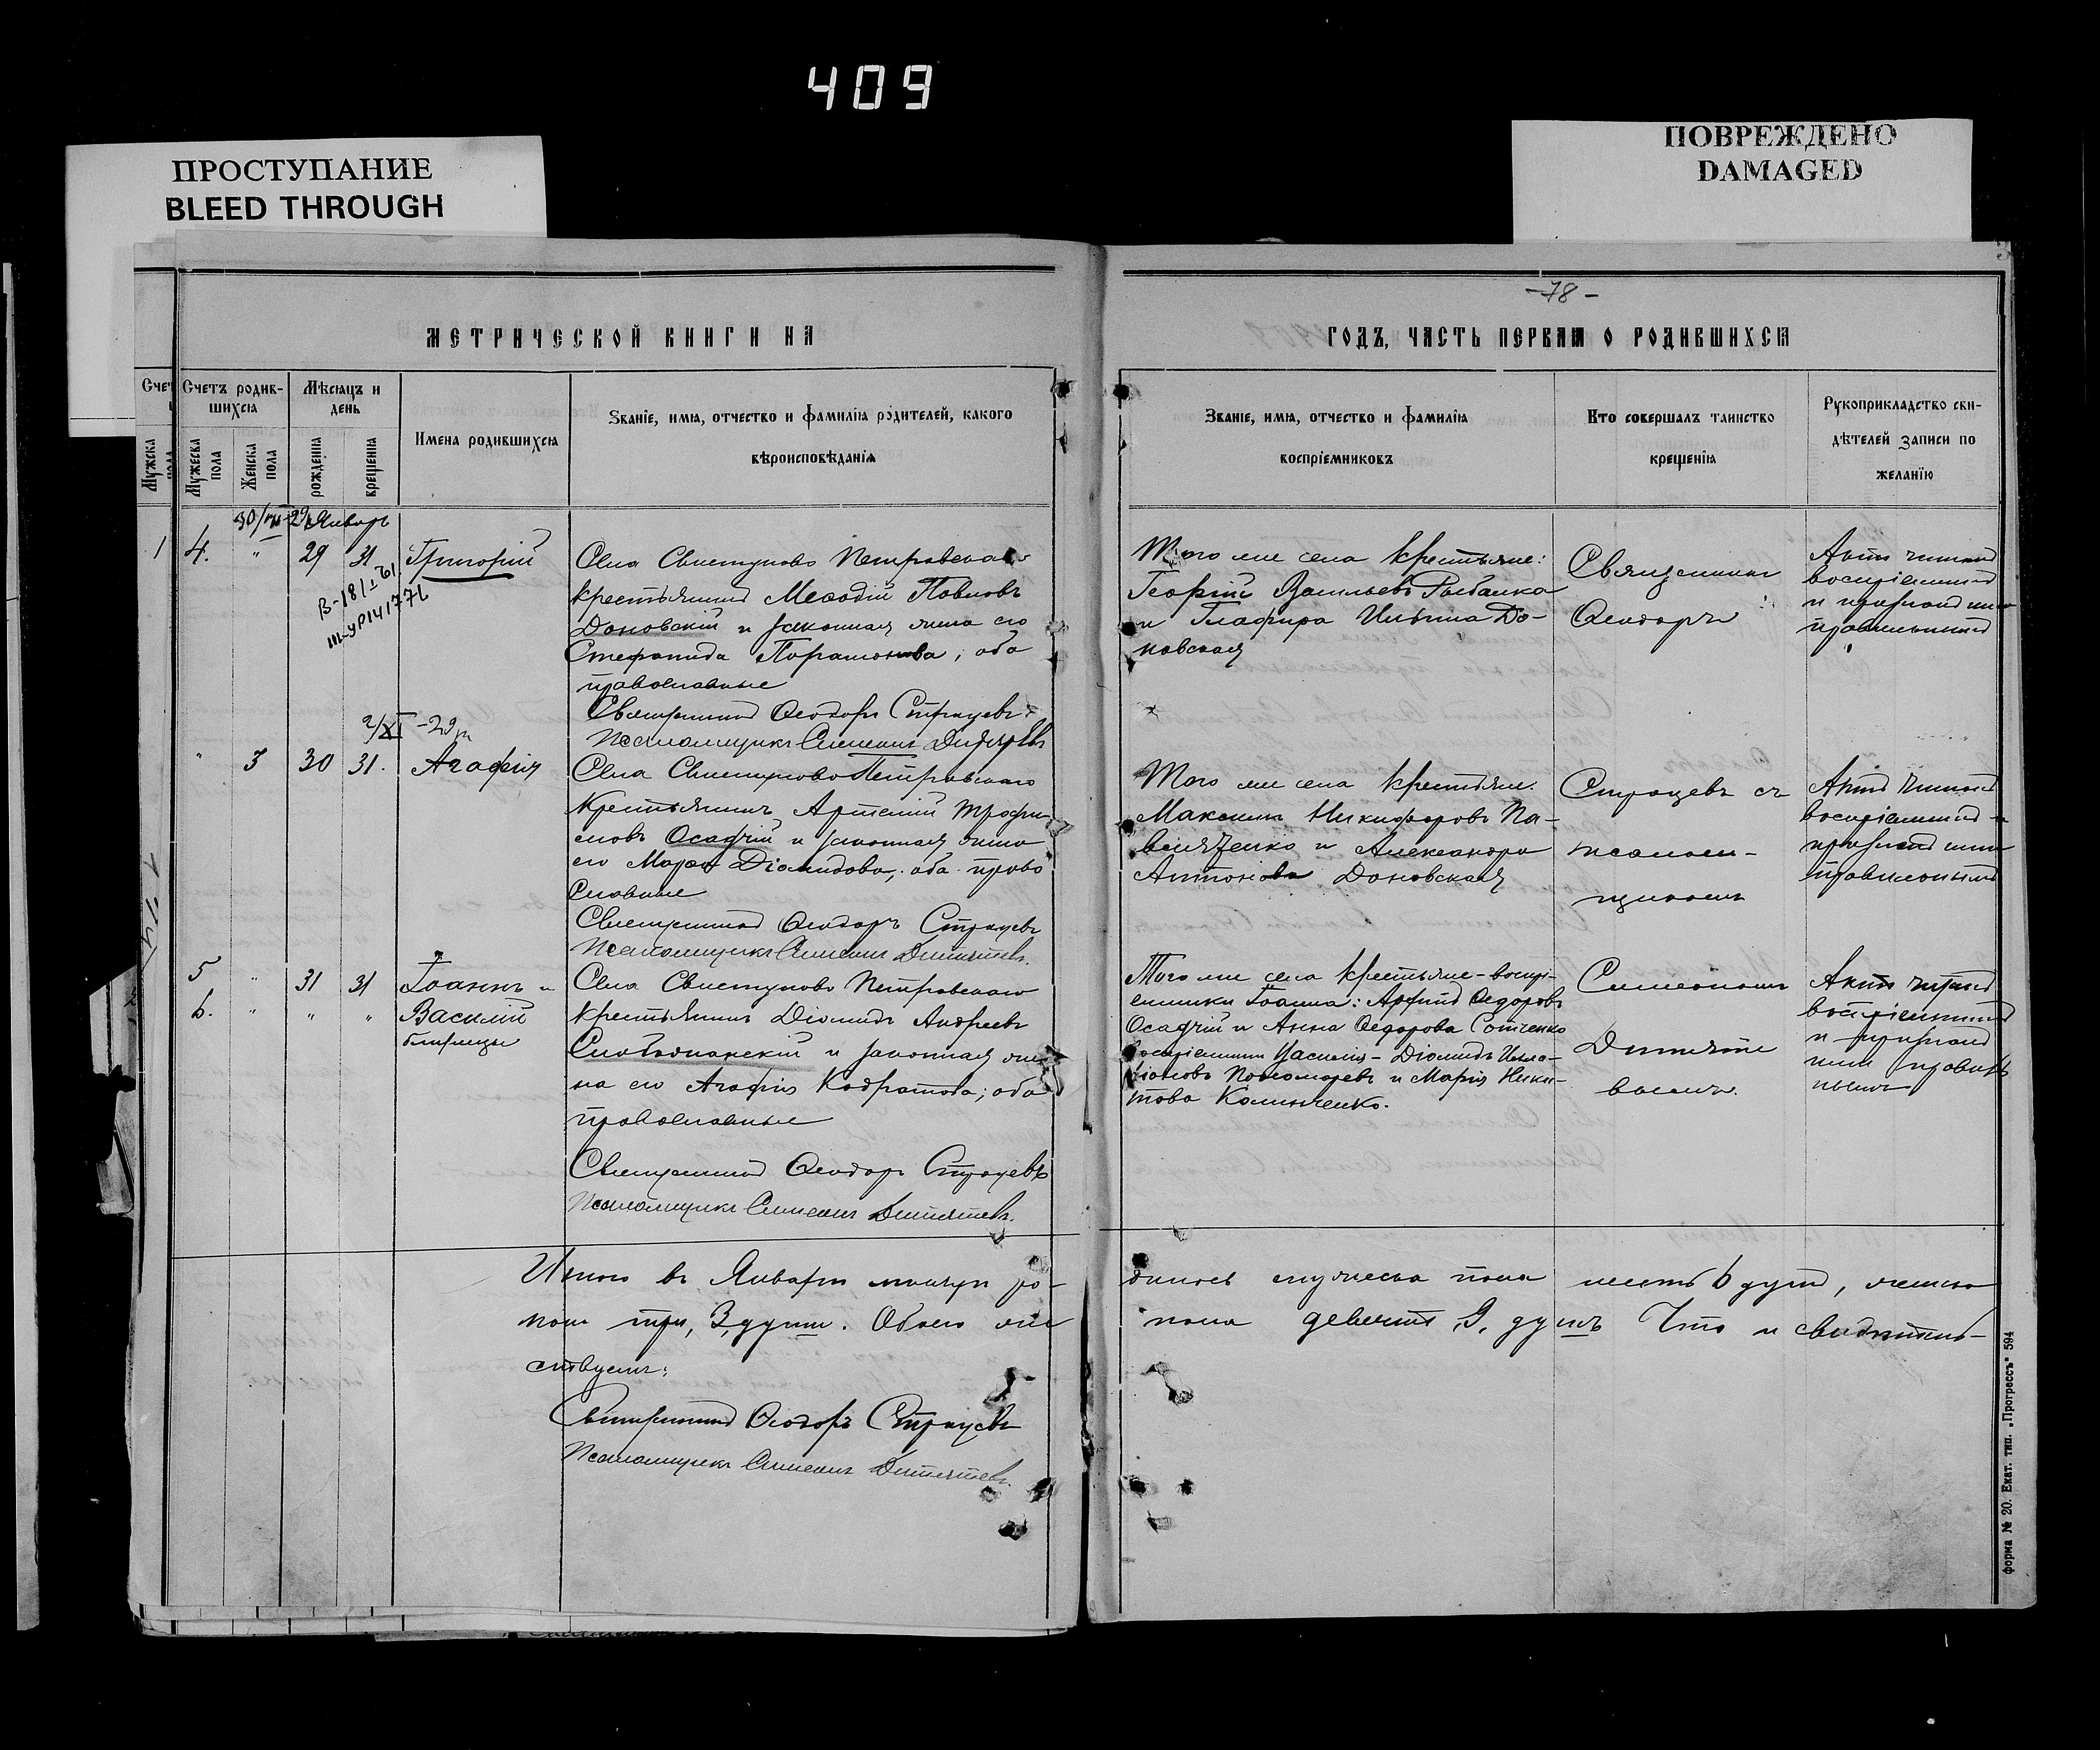 409
ПРОСТУПАНИЕ
BLEED THROUGH
ПОВРЕЖДЕНО
DAMAGED
-78-
МЕТРИЧЕСКОЙ КНИГИ НА
ГОДЪ, ЧАСТЬ ПЕРВАЯ О РОДИВШИХСЯ
Счет
Мужска
Счетъ родив-
шихся
Мужеска
пола
Женска
пола
Мѣсяцъ и
день
рожденія
крещенія
Имена родившихся
Званіе, имя, отчество и фамилія родителей, какого
вѣроисповѣданія
Званіе, имя, отчество и фамилія
воспріемниковъ
Кто совершалъ таинство
крещенія
Рукоприкладство сви-
дѣтелей записи по
желанію
Январь
1
4. " 29 31 Григорій
Села Свистуново Петровскаго
крестьянинъ Меѳодій Павловъ
Доновскій и законная жена его
Стефанида Парамонова, оба
православные
Священникъ Ѳеодоръ Стращевъ
Псаломщикъ Симеонъ
Того же села крестьяне:
Георгій Васильевъ Рыбалка
и Глафира Ильина До-
новская
Священникъ
Ѳеодоръ
2/XI -29
" 3 30 31. Агафія
Села Свистуново Петровскаго
крестьянинъ Артемій Трофи-
мовъ Осадчій и законная жена
его Марѳа Діомидова, оба право
славные
Священникъ Ѳеодоръ Стращевъ
Псаломщикъ Симеонъ Дитятевъ.
Того же села крестьяне:
Максимъ Никифоровъ Па-
и Александра
Антонова Доновская
Стращевъ съ
псалом-
щикомъ
5 " 31 31 Іоаннъ и
6. " " " Василій
близнецы
Села Свистуново Петровскаго
крестьянинъ Діомидъ Андреевъ
Слободянскій и законная же-
на его Агафія Кодратова; оба
православные
Священникъ Ѳеодоръ Стращевъ
Псаломщикъ Симеонъ Дитятевъ.
Того же села крестьяне - воспрі-
емники Іоанна: Ѳедоровъ
Осадчій и Анна Ѳедорова Сотченко
воспріемники Василія - Діомидъ
Пономаревъ и Марія Ники-
това Калиниченко.
Симеономъ
Дитяте
вымъ.
Итого въ Январѣ мѣсяцѣ ро-
дилось мужеска пола шесть 6 душъ, женска
пола три, 3, души. Обоего же
пола девять, 9, душъ Что и свидѣтель-
ствуемъ:
Священникъ Ѳеодоръ Стращевъ
Псаломщикъ Симеонъ Дитятевъ
форма № 20. Екат. тип. „Прогрессъ" 594